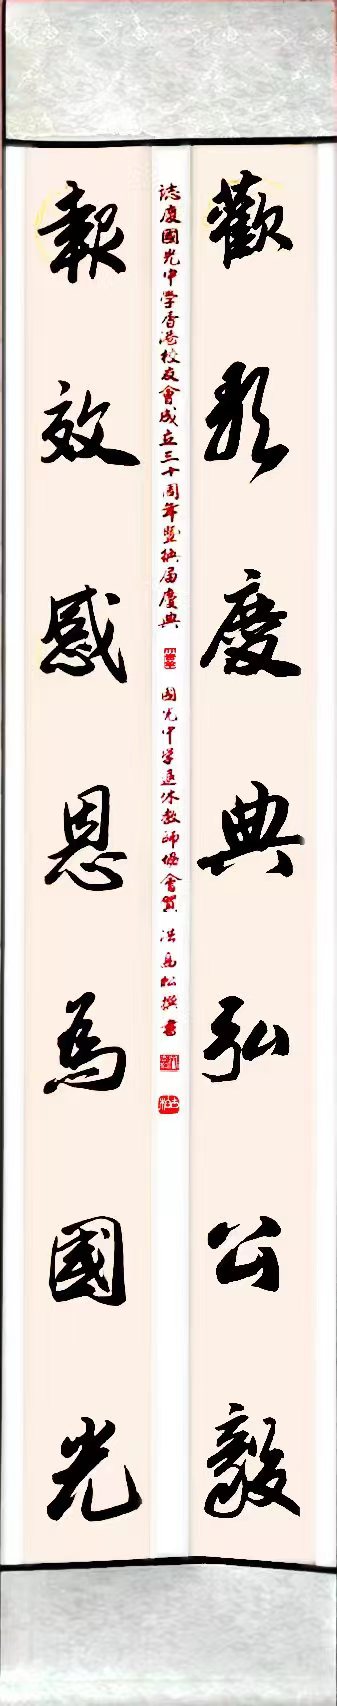 歡聚慶典弘公毅
誌慶國光中學香港校友會成立三十周年暨換屆慶典 國光中學退休教師協會賀 洪松撰書
報效感恩為國光